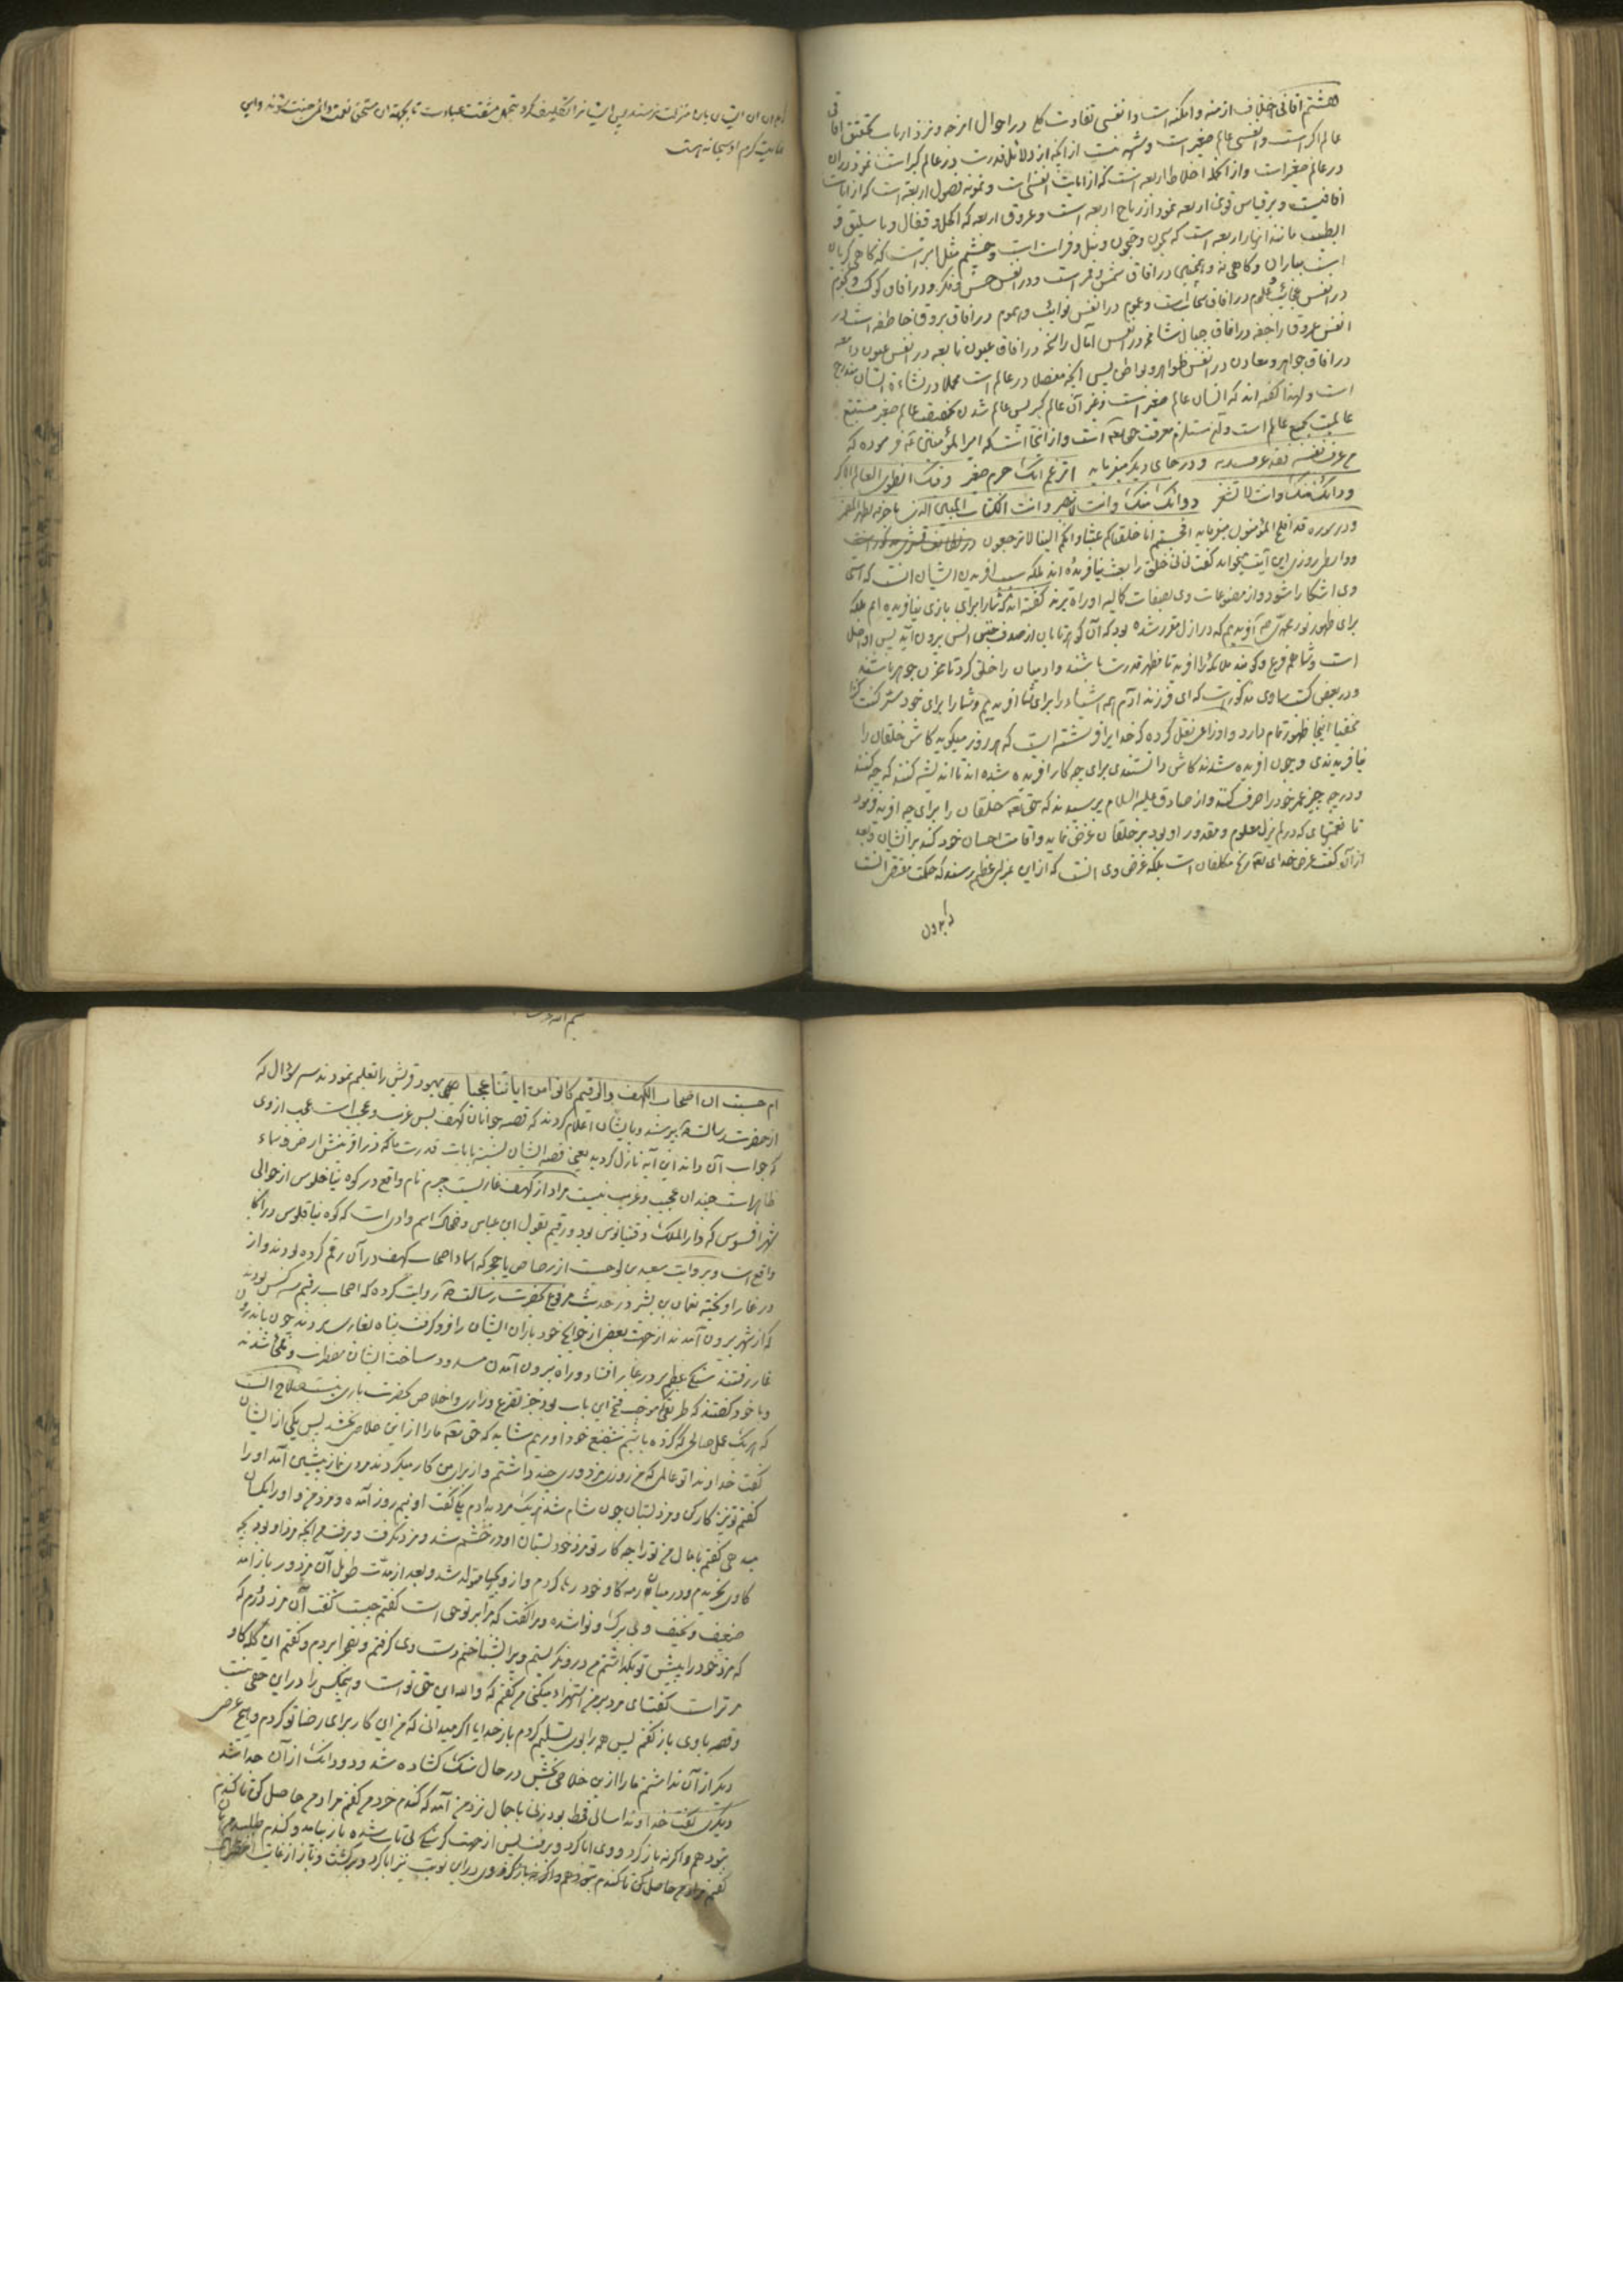 هشتم آفاقی اختلاف ازمنه و امکنه است و انفسی تفاوت کلی در احوال امزجه و نزد ارباب تحقیق آفاقی
عالم اکبر است و انفسی عالم صغیر است و شبهه نیست از آنکه از دلائل قدرت در عالم کبر است نمودار آن
در عالم صغیر است و از آنجمله اخلاط اربعه است که از آیات انفسی است و نمونه فصول اربعه است که از آیات
آفاقیست و بر قیاس قوای اربعه نمودار ریاح اربعه است و عروق اربعه که اکحل و قیفال و باسلیق و
ابطیست مانند انهار اربعه است که سیحون و جیحون و نیل و فرات است و چشم مثل ابر است که گاهی گریان
است بباران و گاهی نه و همچنین در آفاق شمس و قمر است و در انفس حس و فکر و در آفاق کوکب و نجوم
در انفس عجایب علوم در آفاق سحاب است و غیوم در انفس نوایب و هموم در آفاق بروق خاطفه است در
انفس عروق راجفه در آفاق جبال شامخه در انفس آمال راسخه در آفاق عیون نابعه در انفس عیون دامعه
در آفاق جواهر و معادن در انفس ظواهر و بواطن پس آنچه مفصلا در عالم است مجملا در نشاءة انسان مندرج
است و لهذا گفته اند که انسان عالم صغیر است و غیر آن عالم کبیر پس عالم شدن بحقیقت عالم صغیر مستتبع
عالمیت بجمیع عالم است و آن مستلزم معرفت حق تعه است و از اینجا است که امیر المؤمنین عه فرموده که
من عرف نفسه فقد عرف ربه و در جای دیگر میفرماید اتزعم انک جرم صغیر و فیک انطوی العالم الاکبر
و دائک فیک و انت لا تشعر دوائک منک و انت لا تبصر و انت الکتاب المبین الذی باحرفه یظهر المضمر
و در سوره قد افلح المؤمنون میفرماید افحسبتم انما خلقناکم عبثا و انکم الینا لا ترجعون
وی اشکارا شود و از مصنوعات وی بصفات کمالیه او راه برند گفته اند که شما را برای بازی نیافریده ایم بلکه
برای ظهور نور محمدی صه آفریدیم که در ازل مقرر شده بود که آن گوهر تابان از صدف جنس انس بیرون آید پس او اصل
است و شما همه فرع و گویند ملائکه را آفرید تا مظهر قدرت باشند و آدمیان را خلق کرد تا مخزن جوهر باشند
و در بعضی کتب سماوی مذکور است که ای فرزند آدم همه اشیاء را برای شما آفریدیم و شما را برای خود سر کنت کنزا
مخفیا اینجا ظهور تمام دارد و اوزاعی نقل کرده که خدایرا فرشته است که هر روز میگوید کاش خلقان را
نیافریدندی و چون آفریده شدند کاش دانستندی برای چه کار آفریده شده اند تا اندیشه کنند که چه کنند
و در چه چیز عمر خود را صرف کنند و از صادق علیه السلام پرسیدند که حق تعه خلقان را برای چه آفرید فرمود
تا نعمتهای که در لم یزل معلوم و مقدور او بود بر خلقان عرض نماید و اقامت احسان خود کند بر ایشان و بعد
از آن گفت غرض خدای تعه رنج مکلفان است بلکه غرض وی آنست که از این بمنزل عظیم رسند که حکمت مقتضی آنست
بدون آن ایشان باین منزلت نرسند پس ایشانرا تکلیف کرد بتحمل مشقت عبادت تا بجهة آن مستحق نعمت دائمی جنت شوند و این
غایت کرم او سبحانه است
ام حسبت ان اصحاب الکهف و الرقیم کانوا من ایاتنا عجبا چون یهود قریش را تعلیم نمودند سه سؤال که
از حضرت رسالت صه بپرسند و بایشان اعلام کردند که قصه جوانان کهف بس غریب و عجیب است عجب از وی
که جواب آن داند این آیه نازل گردید یعنی قصه ایشان نسبت بآیات قدرت ما که در آفرینش ارض و سماء
ظاهر است چندان عجب و غریب نیست مراد از کهف غاریست جیرم نام واقع در کوه نیاخلوس از حوالی
شهر افسوس که دار الملک دقیانوس بود و رقیم بقول ابن عباس و ضحاک اسم وادی است که کوه نیاقلوس در آنجا
واقع است و بروایت سعید بن لوحیست از رصاص یا حجر که اسماء اصحاب کهف در آن رقم کرده بودند و از
در غار آویخته نعمان بن بشیر در حدیث مرفوع بحضرت رسالت صه روایت کرده که اصحاب رقیم سه کس بودند
که از شهر بیرون آمدند از جهت بعضی از حوایج خود باران ایشان را فرو گرفت پناه بغاری بردند چون باندرون
غار رفتند سنگ عظیم بر در غار افتاد و راه بیرون آمدن مسدود ساخت ایشان مضطرب و ملجأ شدند
و با خود گفتند که طریقی موجب فتح این باب بود جز تضرع و زاری و اخلاص بحضرت باری نیست صلاح آنست
که هر یک عمل صالحی که کرده باشیم شفیع خود آوریم شاید که حق تعه ما را از این خلاصی بخشد پس یکی از ایشان
گفت خداوندا تو عالمی که من روزی مزدوری چند داشتم و از برای من کار میکردند مردی نماز پیشین آمد او را
گفتم تو نیز کار کن و مزد بستان چون شام شد هر یک مزد بدادم یکی گفت او نیم روز آمده و مزد من و او را یکسان
میدهی گفتم با مال من ترا چه کار تو مزد خود بستان او در خشم شد و مزد نگرفت و برفت من آنچه مزد او بود بچه
گاوی بخریدم و در میان رمه گاو خود رها کردم و از و بچها متولد شد و بعد از مدت طویل آن مزدور باز آمد
ضعیف و نحیف و بی برگ و نوا شده و مرا گفت که مرا بر تو حقی است گفتم چیست گفت آن مزدورم که
که مزد خود را پیش تو بگذاشتم من در و نگریستم ویرا بشناختم دست وی گرفتم و بصحرا بردم و گفتم این گله گاو
مر تراست گفت ای مرد بر من استهزاء میکنی من گفتم که و الله این حق تو است و هیچکس را در این حقی نیست
و قصه با وی باز گفتم پس همه را بوی تسلیم کردم بار خدایا اگر میدانی که من این کار برای رضا تو کردم و هیچ غرض
دیگر از آن نداشتم ما را ازین خلاصی بخش در حال سنگ گشاده شد و دودانگ از آن جدا شد
دیگری گفت خداوندا سالی قحط بود زنی با جمال نزد من آمد که گندم خرد من گفتم مراد من حاصل کن تا گندم
بتو دهم و اگر نه باز گرد و وی ابا کرد و برفت پس از جهت گرسنگی بی تاب شده باز بیامد و گندم طلبید من
گفتم مراد من حاصل کن تا گندم بتو دهم و اگر نه باز گرد در این نوبت نیز ابا کرد و برگشت و باز از غایت اضطرار